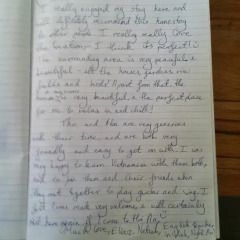 I really enjoyed my stay here and
will definitely recommend this homestay
to other people. I really really love
the location, I think it's perfect!
The surrounding area is very peaceful &
beautiful - all the houses, gardens
fields and Apart from that, the
is very beautiful & the perfect place
for me to relax in and chill!
Tho and Hoa are very generous
with their time, and are both very
friendly and easy to get on with. I was
very happy to learn Vietnamese with them both,
and to join them and their friends when
they met together to play guitar and sing. I
felt I was made very welcome & will certainly
stay here again if I come to Hoi An.
Much love,
English teacher
in